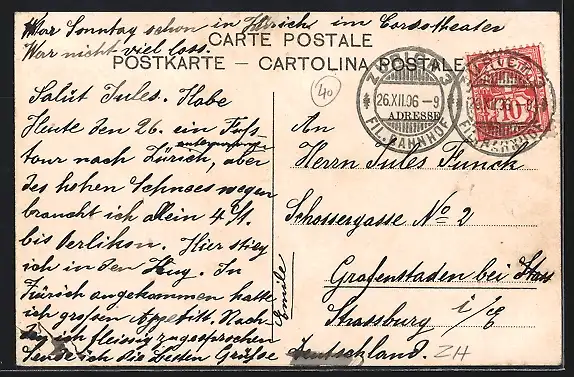 War Sonntag schon in Zürich im Corsotheater
War nicht viel loss.
CARTE POSTALE
POSTKARTE – CARTOLINA POSTALE
40
ZÜRICH 3
26.XII.06 – 9
FIL. BAHNHOF
ADRESSE
HELVETIA
10
Salüt Jules. Habe
Heute den 26. ein Fuss-
tour nach Zürich, unternommen aber
des hohen Schnees wegen
braucht ich allein 4 St.
bis Oerlikon. Hier stieg
ich in den Zug. In
Zürich angekommen hatte
ich grossen Appetitt. Nach-
dem ich fleissig zugesprochen
sende ich die besten Grüsse
Emile
An
Herrn Jules Funck
Schossergasse No 2
Grafenstaden bei
Strassburg i/E
Deutschland.
ZH